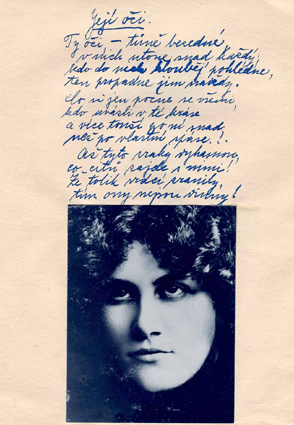 Její oči.
Ty oči – tůně bezedné
v nich utone snad každý,
kdo do nich hlouběji pohlédne,
ten propadne jim navždy.
Co si jen počne se všemi,
kdo uvázli v té kráse
a více touží po ní snad,
než po vlastní spáse!.
Až tyto zraky vyhasnou,
co citů zajde s nimi!
té tolik srdcí zranily,
tím ony nejsou vinny!